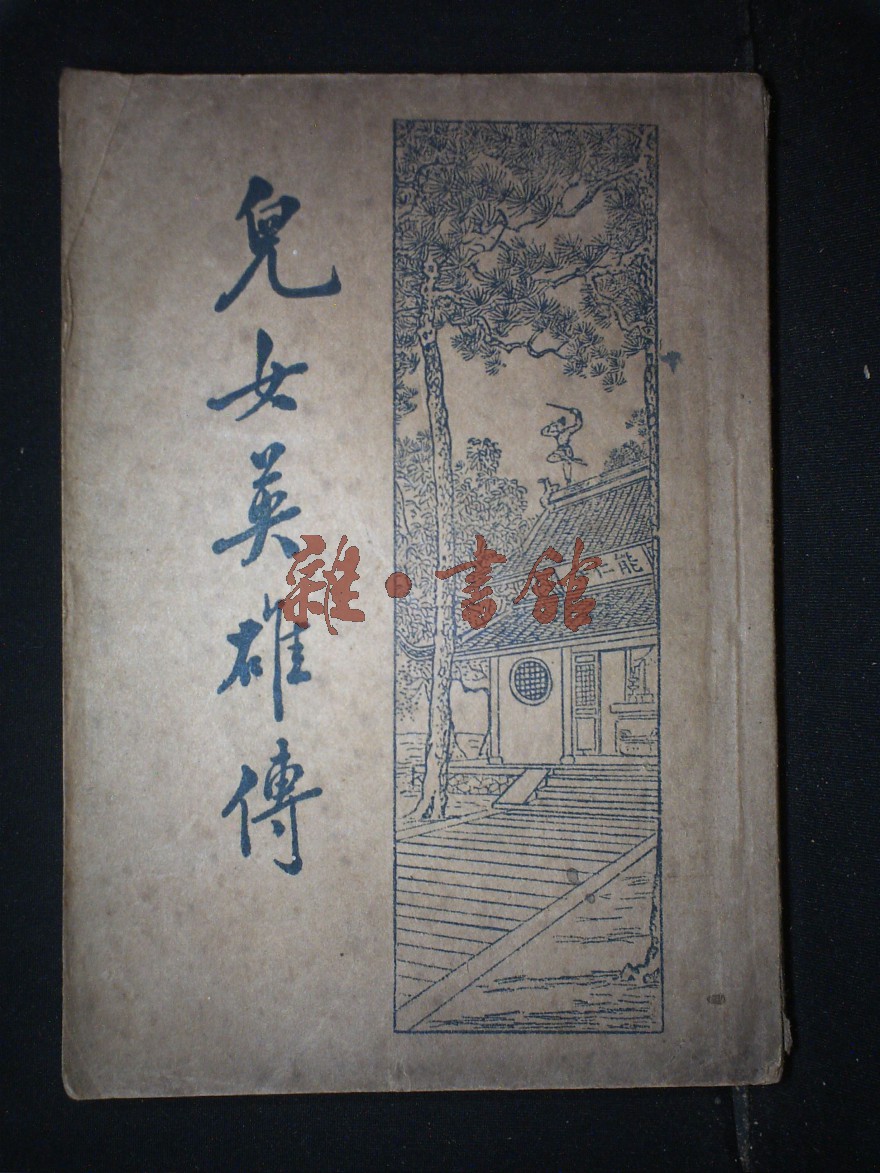 兒女英雄傳
能仁
雜·書館